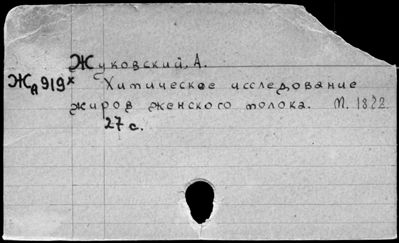 Жуковский, А.
ЖА919х Химическое исследование
жиров женского молока. М. 1882.
27 с.